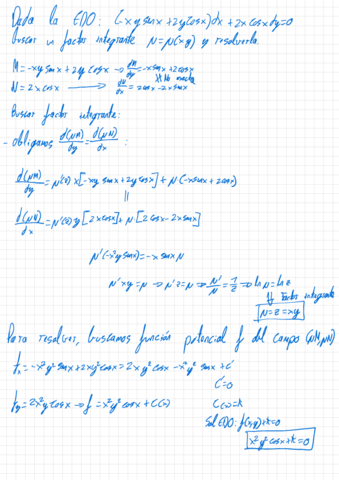 Dada la EDO: (-xy sinx + 2y cosx)dx + 2x cosx dy = 0
buscar un factor integrante μ = μ(xy) y resolverla.
M = -xy sinx + 2y cosx → dM/dy = -x sinx + 2 cosx
N = 2x cosx → dN/dx = 2cosx - 2x sinx
Buscar factor integrante:
- obligamos d(μM)/dy = d(μN)/dx :
d(μM)/dy = μ'(z) x [-xy sinx + 2y cosx] + μ (-x sinx + 2cosx)
||
d(μN)/dx = μ'(z) y [2x cosx] + μ [2cosx - 2x sinx]
μ' (-x²y sinx) = -x sinx μ
μ' xy = μ → μ' z = μ → μ'/μ = 1/z → ln μ = ln z
Factor integrante
μ = z = xy
Para resolver, buscamos función potencial f del campo (μM, μN)
fx = -x²y² sinx + 2xy² cosx = 2xy² cosx - x²y² sinx + C'
C' = 0
fy = 2x²y cosx → f = x²y² cosx + C(x)
C(x) = k
Sol EDO: f(x,y) + k = 0
x²y² cosx + k = 0